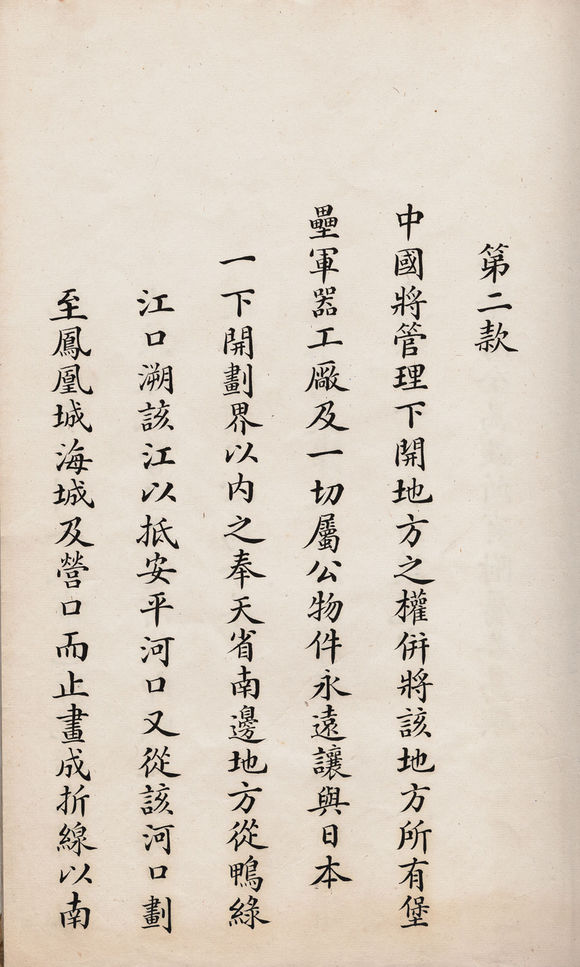 第二款
中國將管理下開地方之權併將該地方所有堡
壘軍器工廠及一切屬公物件永遠讓與日本
一下開劃界以內之奉天省南邊地方從鴨綠
江口溯該江以抵安平河口又從該河口劃
至鳳凰城海城及營口而止畫成折線以南